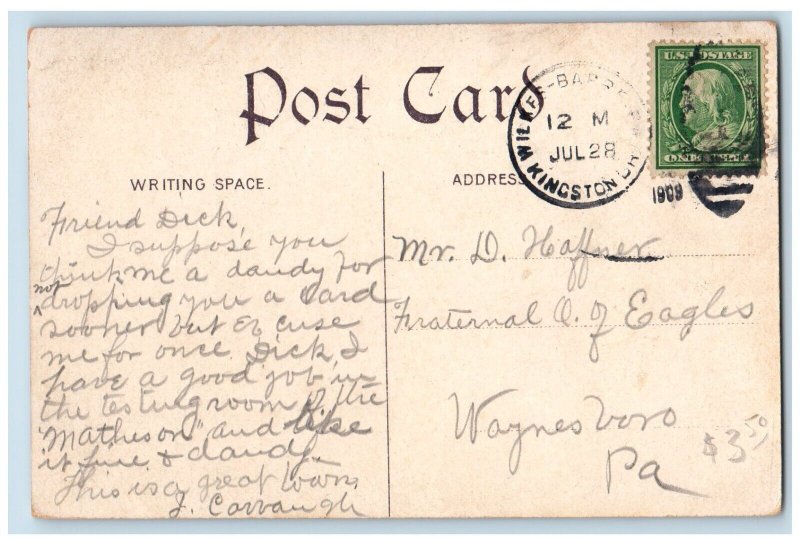 Post Card
WILKES-BARRE
12 M
JUL 28
KINGSTON BR
1909
U.S. POSTAGE
ONE CENT
WRITING SPACE.
ADDRESS
Friend Dick,
I suppose you
think me a dandy for
not dropping you a card
sooner but Ex cuse
me for once. Dick, I
have a good job in
the testing room of the
"Matheson" and like
it fine & dandy.
This is a great town
J. Carvaugh
Mr. D. Haffner
Fraternal O. of Eagles
Waynesboro
Pa
$3.50